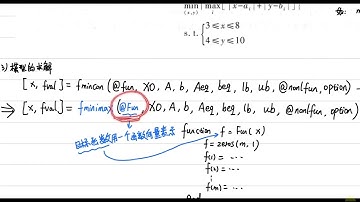 min max [ |x-aᵢ| + |y-bᵢ| ]
(x,y)
s.t. { 3≤x≤8
4≤y≤10
3) 模型的求解
[x, fval] = fmincon (@fun, X0, A, b, Aeq, beq, lb, ub, @nonlfun, option)
⇒ [x, fval] = fminimax (@Fun, X0, A, b, Aeq, beq, lb, ub, @nonlfun, option)
目标函数用一个函数向量表示
function f = Fun(x)
f = zeros(m, 1)
f(1) = ...
f(2) = ...
⋮
f(m) = ...
end